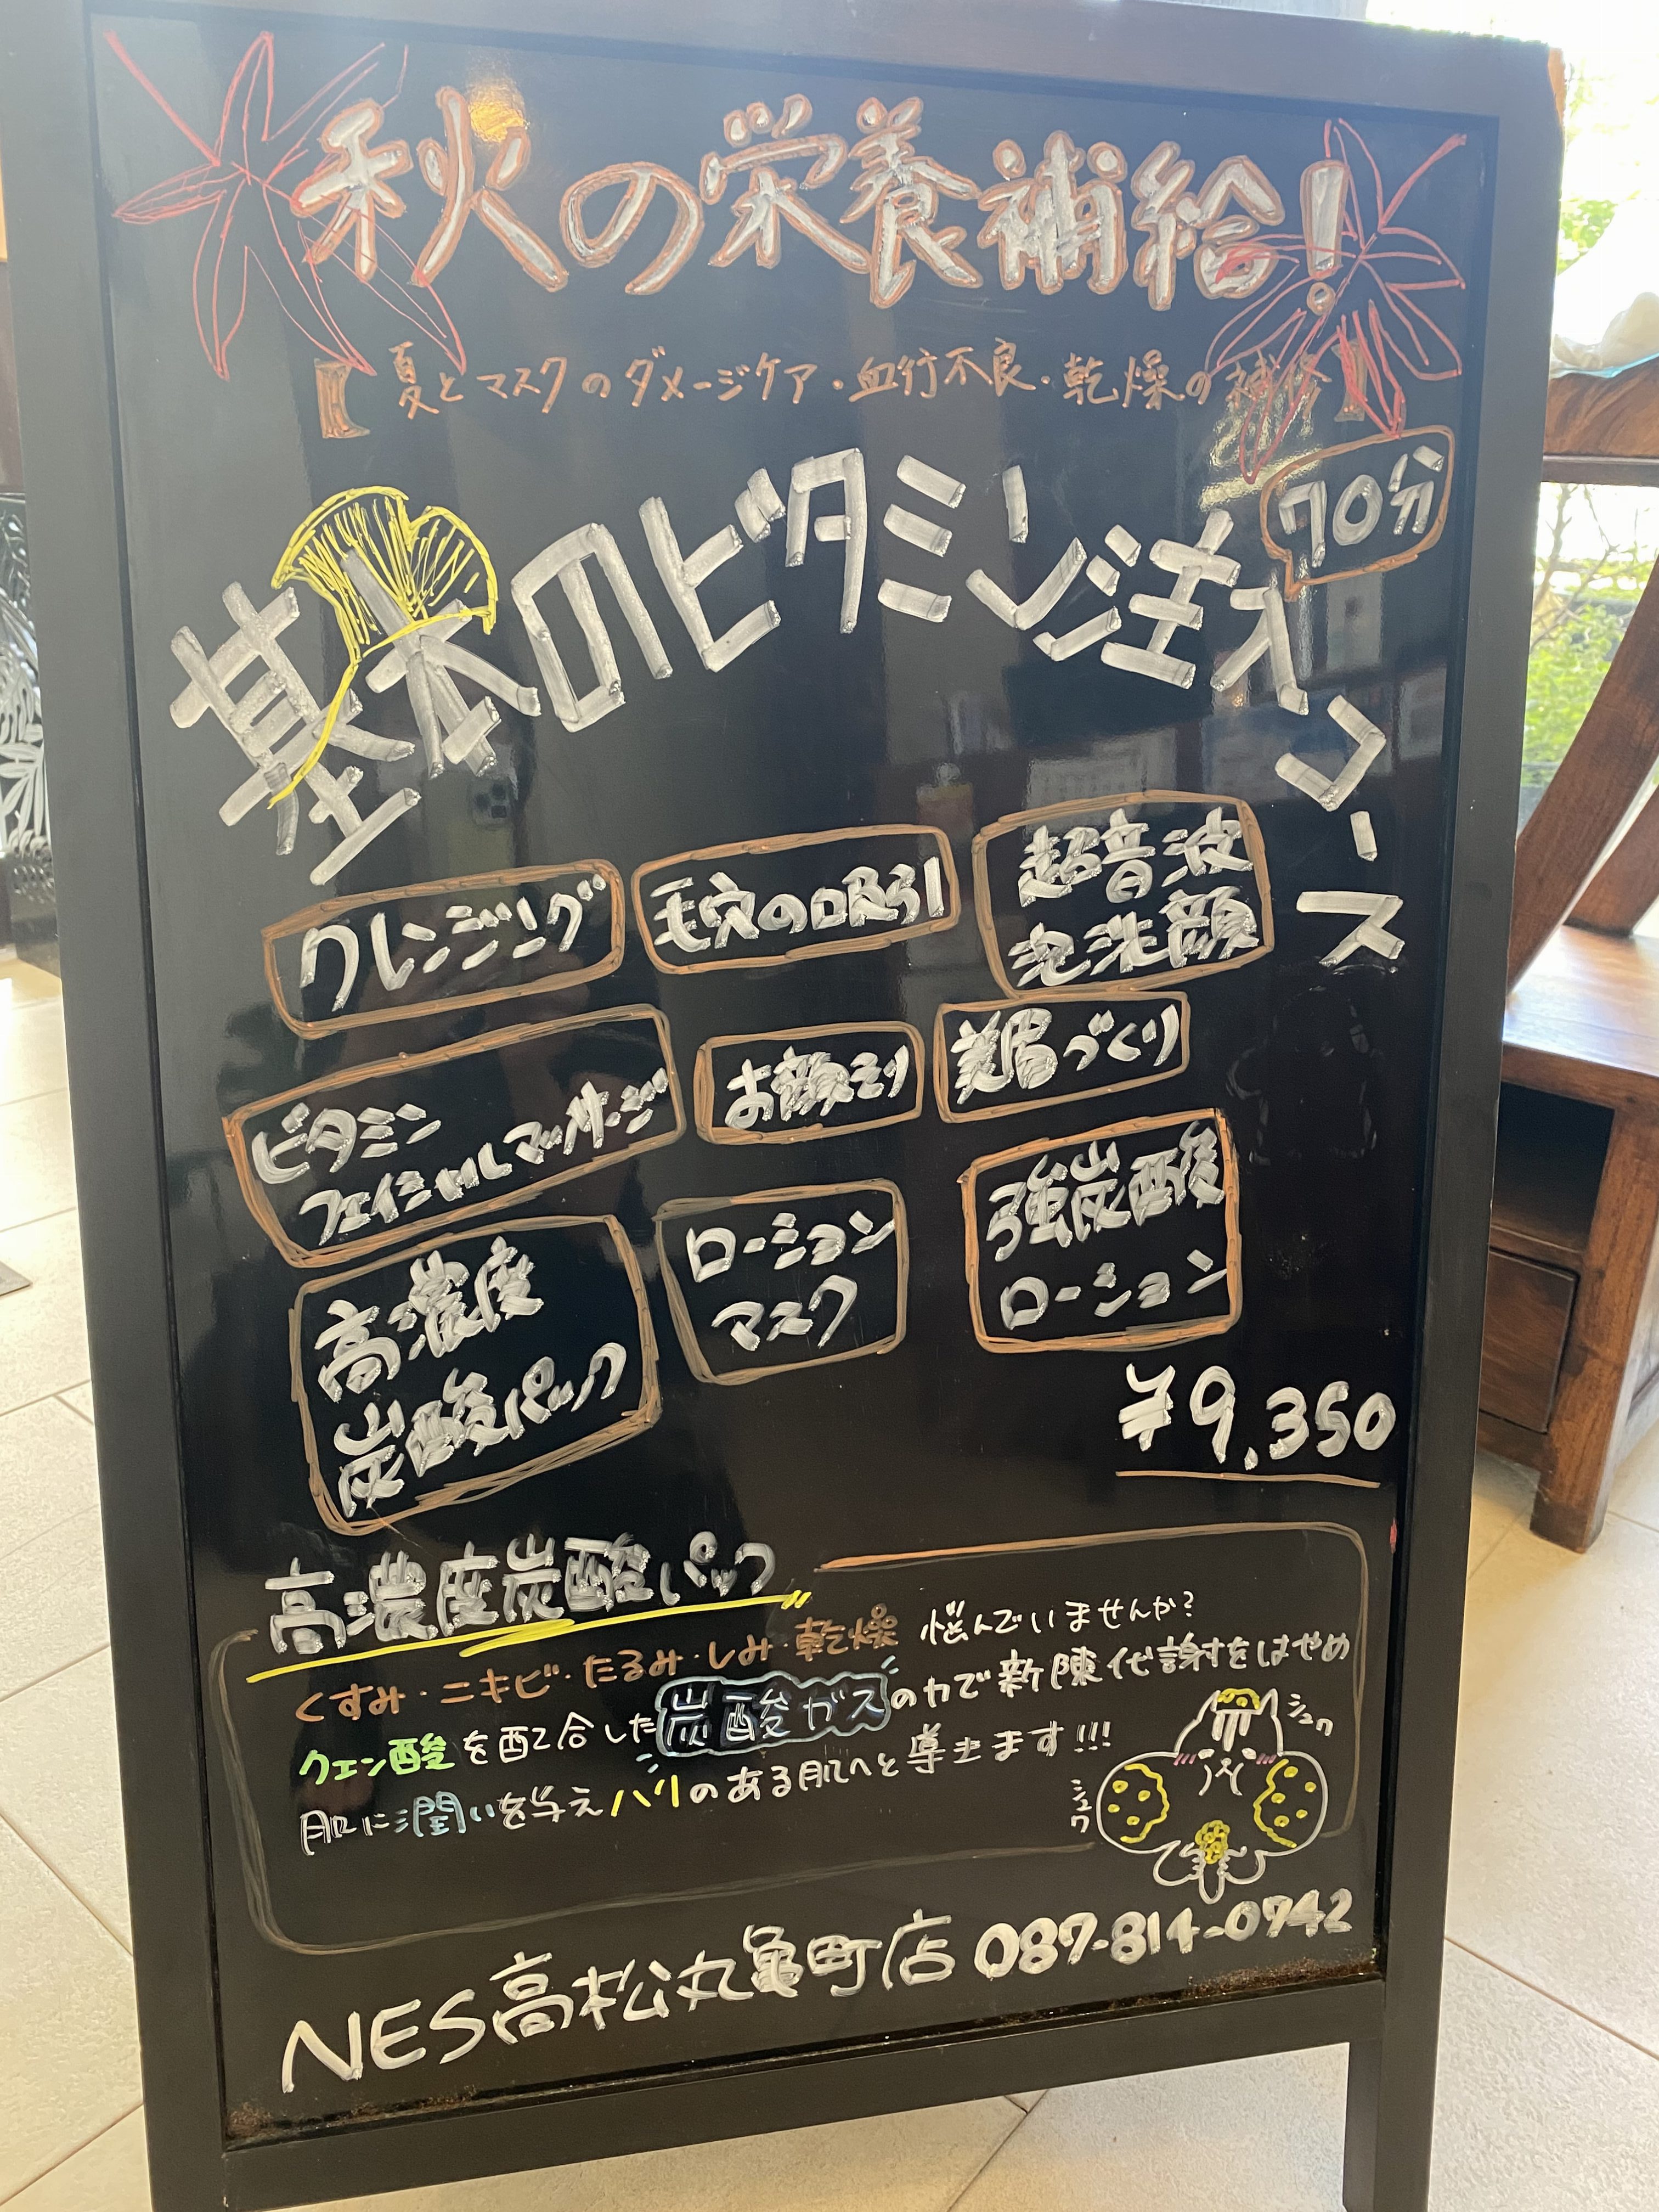 秋の栄養補給!
【夏とマスクのダメージケア・血行不良・乾燥の補修】
70分
基本のビタミン注入コース
クレンジング
毛穴の吸引
超音波
泡洗顔
ビタミン
フェイシャルマッサージ
お顔そり
美眉づくり
高濃度
炭酸パック
ローション
マスク
強炭酸
ローション
¥9,350
高濃度炭酸パック
くすみ・ニキビ・たるみ・しみ・乾燥 悩んでいませんか?
クエン酸を配合した炭酸ガスの力で新陳代謝をはやめ
肌に潤いを与えハリのある肌へと導きます!!!
シュワ
シュワ
NES高松丸亀町店 087-814-0742